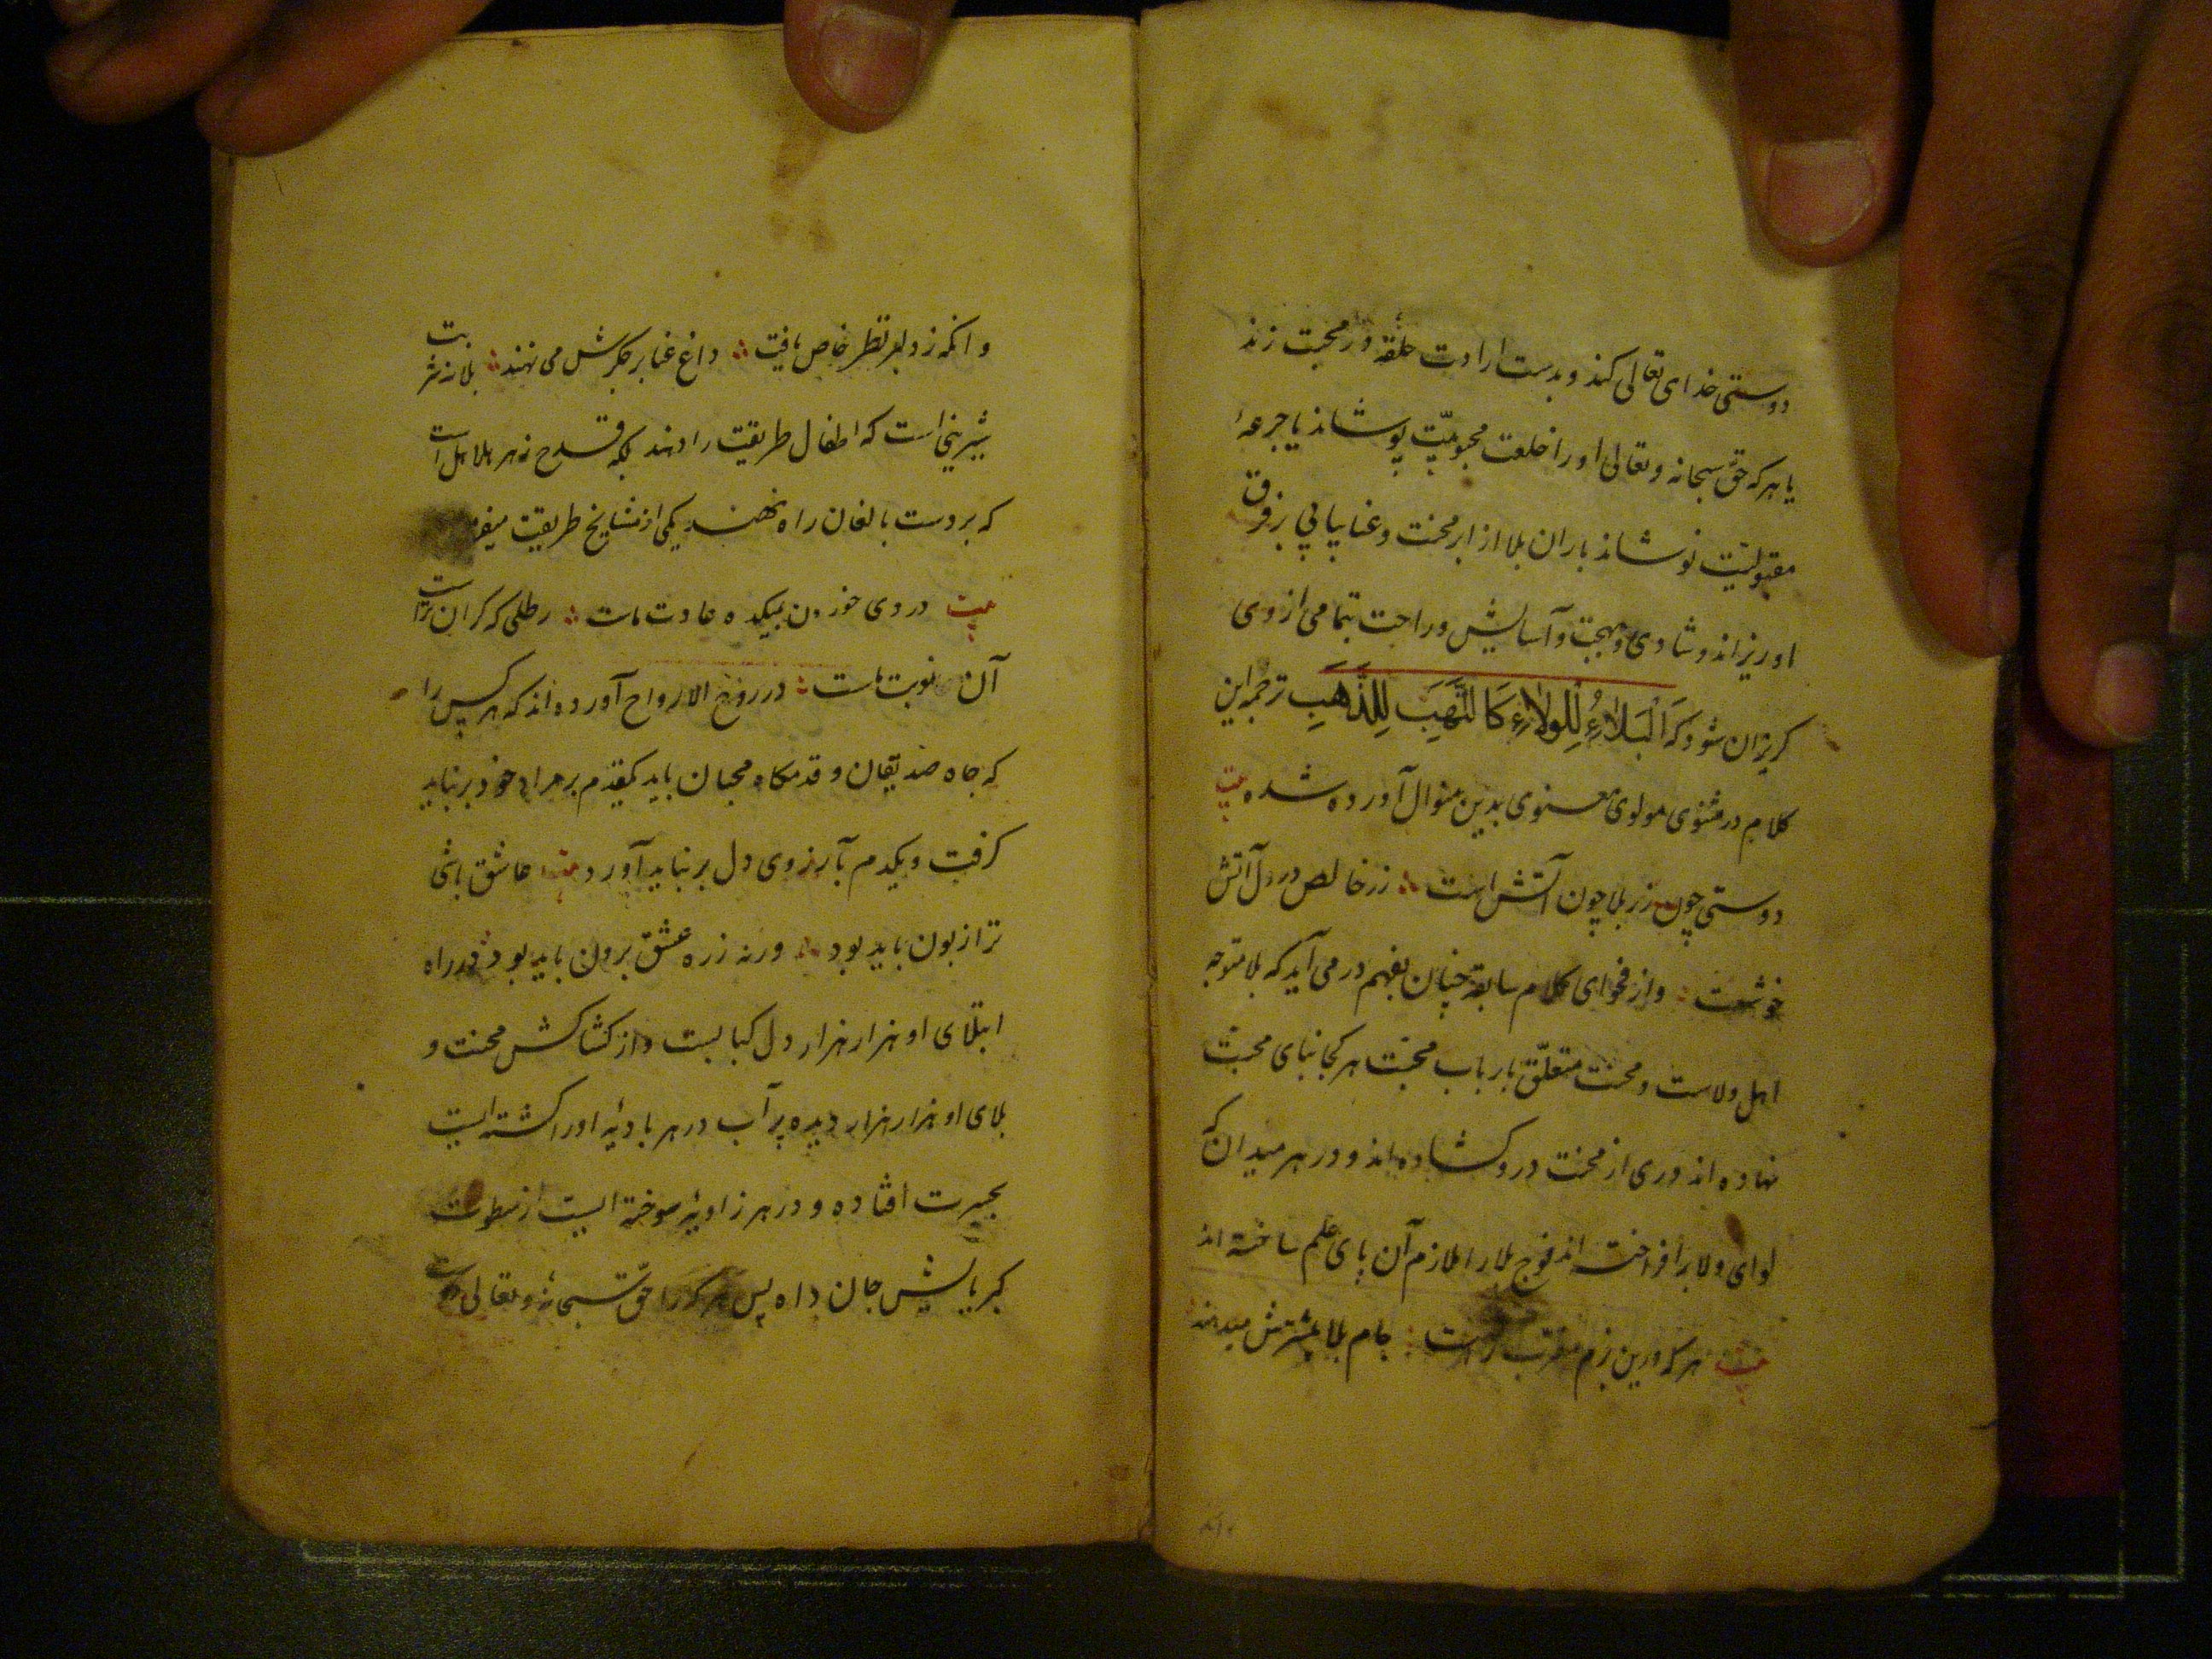 دوستی خدای تعالی کند و بدست ارادت حلقهٔ در محبت زند
یا هرکه حق سبحانه و تعالی او را خلعت محبوبیّت پوشاند یا جرعهٔ
مقبولیّت نوشاند باران بلا از ابر محنت و عنا پیاپی بر فرق
او ریزاند و شادی و بهجت و آسایش و راحت بتمامی از وی
کریزان شود که اَلْبَلاءُ لِلْوَلاءِ کَاللَّهَبِ لِلذَّهَبِ ترجمه این
کلام در مثنوی مولوی معنوی بدین منوال آورده شده بیت
دوستی چون زر بلا چون آتش است زر خالص در دل آتش
خوشست و از فحوای کلام سابقه چنان بفهم در می آید که بلا متوجه
اهل ولاست و محنت متعلّق بارباب محبت هر کجا بنای محبت
نهاده اند دری از محنت درو کشاده اند و در هر میدان که
لوای ولا برافراخته اند فوج بلا را ملازم آن پای علم ساخته اند
بیت هر که درین بزم مقرّب ترست جام بلا بیشترش میدهند
وانکه ز دلبر نظر خاص یافت داغ عنا بر جکرش می نهند بلا نه شربت
شیرینی است که اطفال طریقت را دهند بلکه قدح زهر هلاهل است
که بر دست بالغان راه نهند یکی از مشایخ طریقت میفر
بیت دردی خوردن بمیکده عادت ماست رطلی که کران تر است
آن نوبت ماست در روح الارواح آورده اند که هر کس را
که جاه صدیقان و قدمکاه محبان باید یکقدم بر مراد خود بر نباید
کرفت و یکدم بآرزوی دل بر نباید آورد بیت عاشق باشی
ترا زبون باید بود ورنه ز ره عشق برون باید بود در راه
ابتلای او هزار هزار دل کبابست و از کشاکش محنت و
بلای او هزار هزار دیده پر آب در هر بادیه او را کشته ایست
بحیرت افتاده و در هر زاویه سوخته ایست از سطوت
کبریایش جان داده پس هر که را حق سبحانه و تعالی